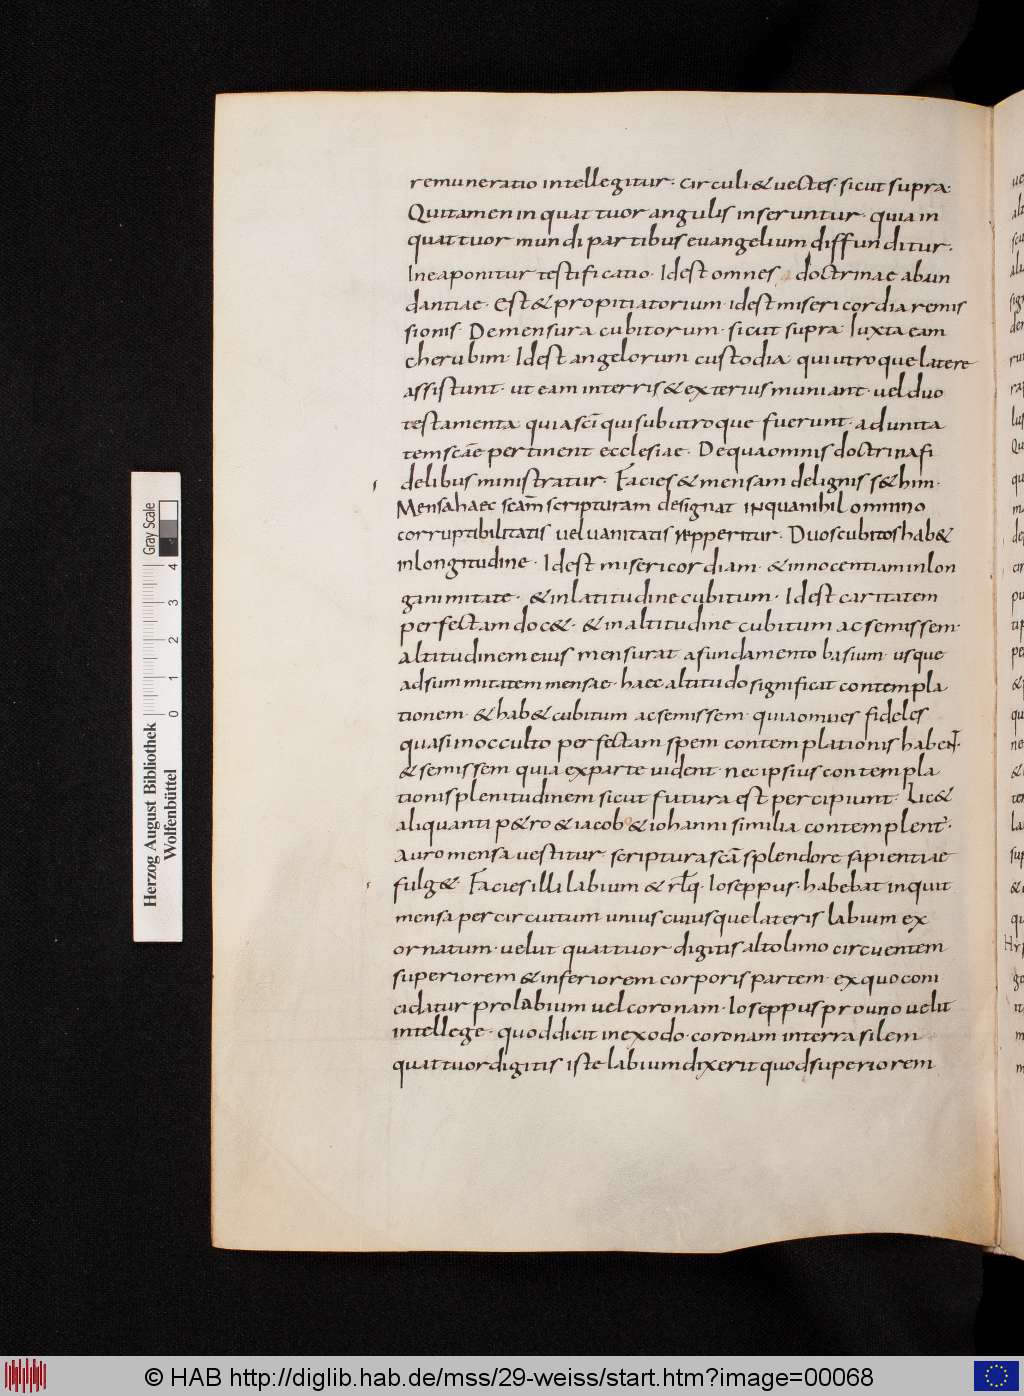 remuneratio intellegitur · circuli & uectes · sicut supra ·
Qui tamen in quattuor angulis inseruntur · quia in
quattuor mundi partibus euangelium diffunditur ·
In ea ponitur testificatio · Idest omnes doctrinae abun
dantiae · Est & propitiatorium · idest misericordia remis
sionis · De mensura cubitorum · sicut supra · Iuxta eam
cherubim · Idest angelorum custodia qui utroque latere
assistunt · ut eam interris & exterius muniant · uel duo
testamenta quia sc̄i qui sub utroque fuerunt · ad unita
tem sc̄ae pertinent ecclesiae · De qua omnis doctrina fi
delibus ministratur · Facies & mensam de lignis s&him ·
Mensa haec sc̄am scripturam designat in qua nihil omnino
corruptibilitatis uel uanitatis repperitur · Duos cubitos hab&
in longitudine · Idest misericordiam · & innocentiam in lon
ganimitate · & in latitudine cubitum · Idest caritatem
perfectam doc& · & in altitudine cubitum ac semissem ·
altitudinem eius mensurat a fundamento basium usque
ad summitatem mensae · haec altitudo significat contempla
tionem · & hab& cubitum ac semissem · quia omnes fideles
quasi in occulto perfectam spem contemplationis habent ·
& semissem quia ex parte uident · nec ipsius contempla
tionis plenitudinem sicut futura est percipiunt · Lic&
aliquanti p&ro & iacobo & iohanni similia contemplent̄ ·
Auro mensa uestitur · scriptura sc̄a splendore sapientiae
fulg& · Facies illi labium & rl̄q · Ioseppus · habebat inquit
mensa per circuitum unius cuiusque lateris labium ex
ornatum · uelut quattuor digitis altolimo circuentem
superiorem & inferiorem corporis partem · ex quo coni
cidatur pro labium uel coronam · Ioseppus pro uno uelit
intellege · quod dicit in exodo · coronam interrasilem
quattuor digitis iste labium dixerit quod superiorem
Herzog August Bibliothek
Wolfenbüttel
0 1 2 3 4
Gray Scale
© HAB http://diglib.hab.de/mss/29-weiss/start.htm?image=00068